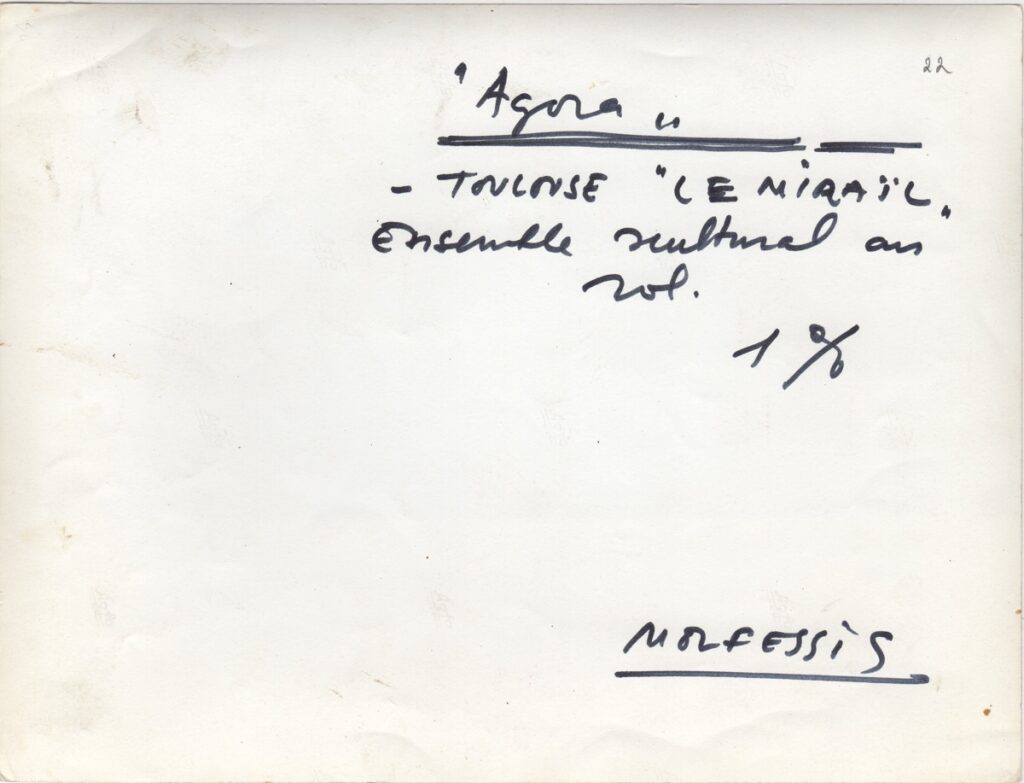 22
"Agora"
- TOULOUSE "LE MIRAÏL"
Ensemble scultural au
sol.
1 %
MOLFESSIS